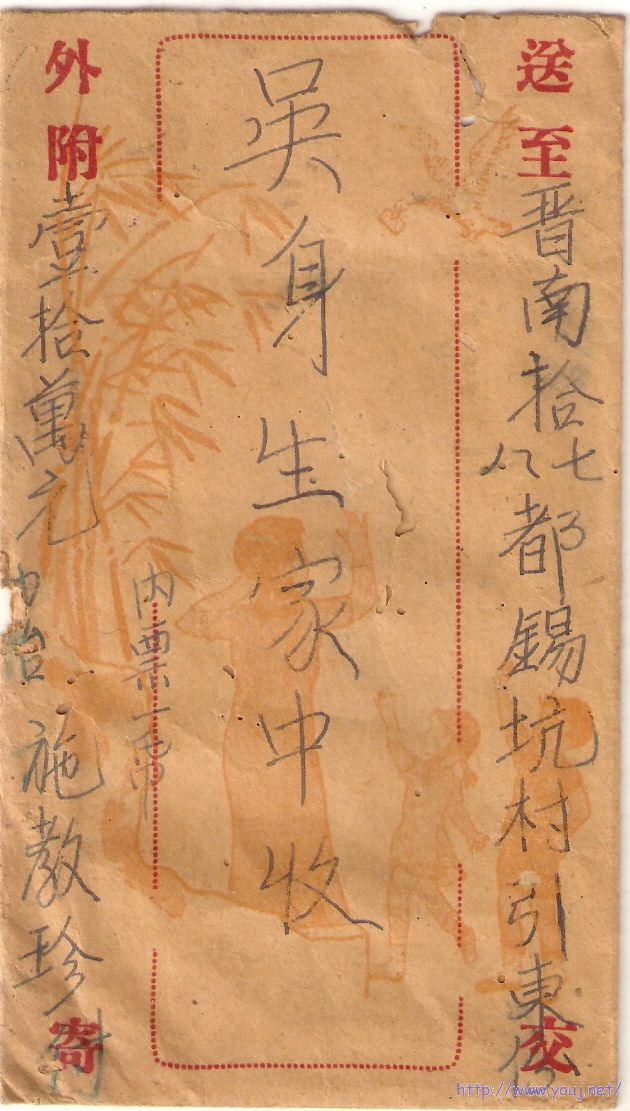 送至晋南拾七八都錫坑村引東交
吳身生家中收
内票一
外附壹拾萬元
施教珍寄
http://www.youj.net/